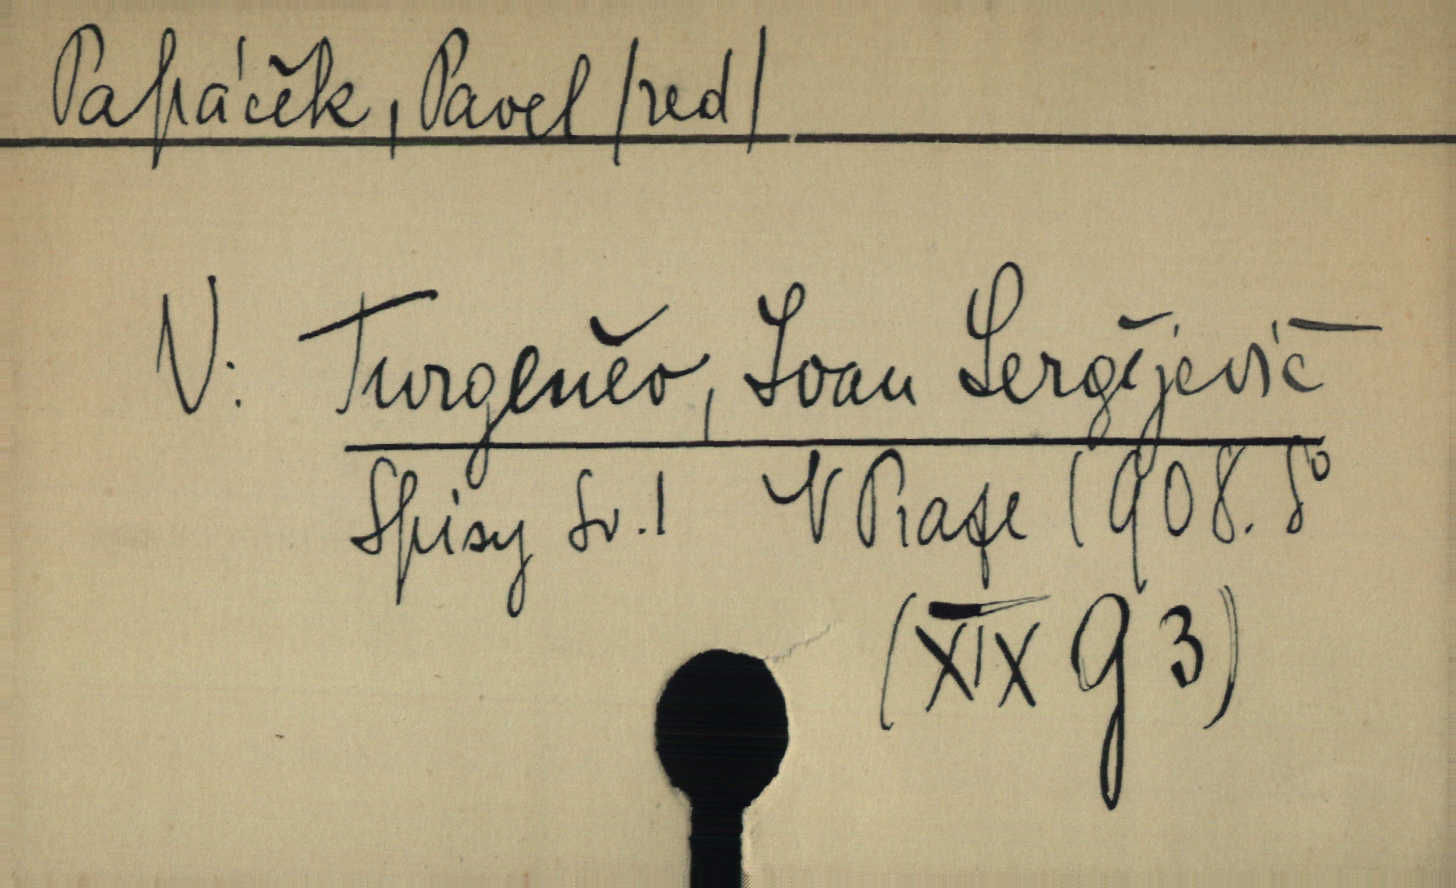 Papáček, Pavel /red/
V: Turgeněv, Ivan Sergějevič
Spisy Sv.1 V Praze 1908. 8°
(XIX G 3)